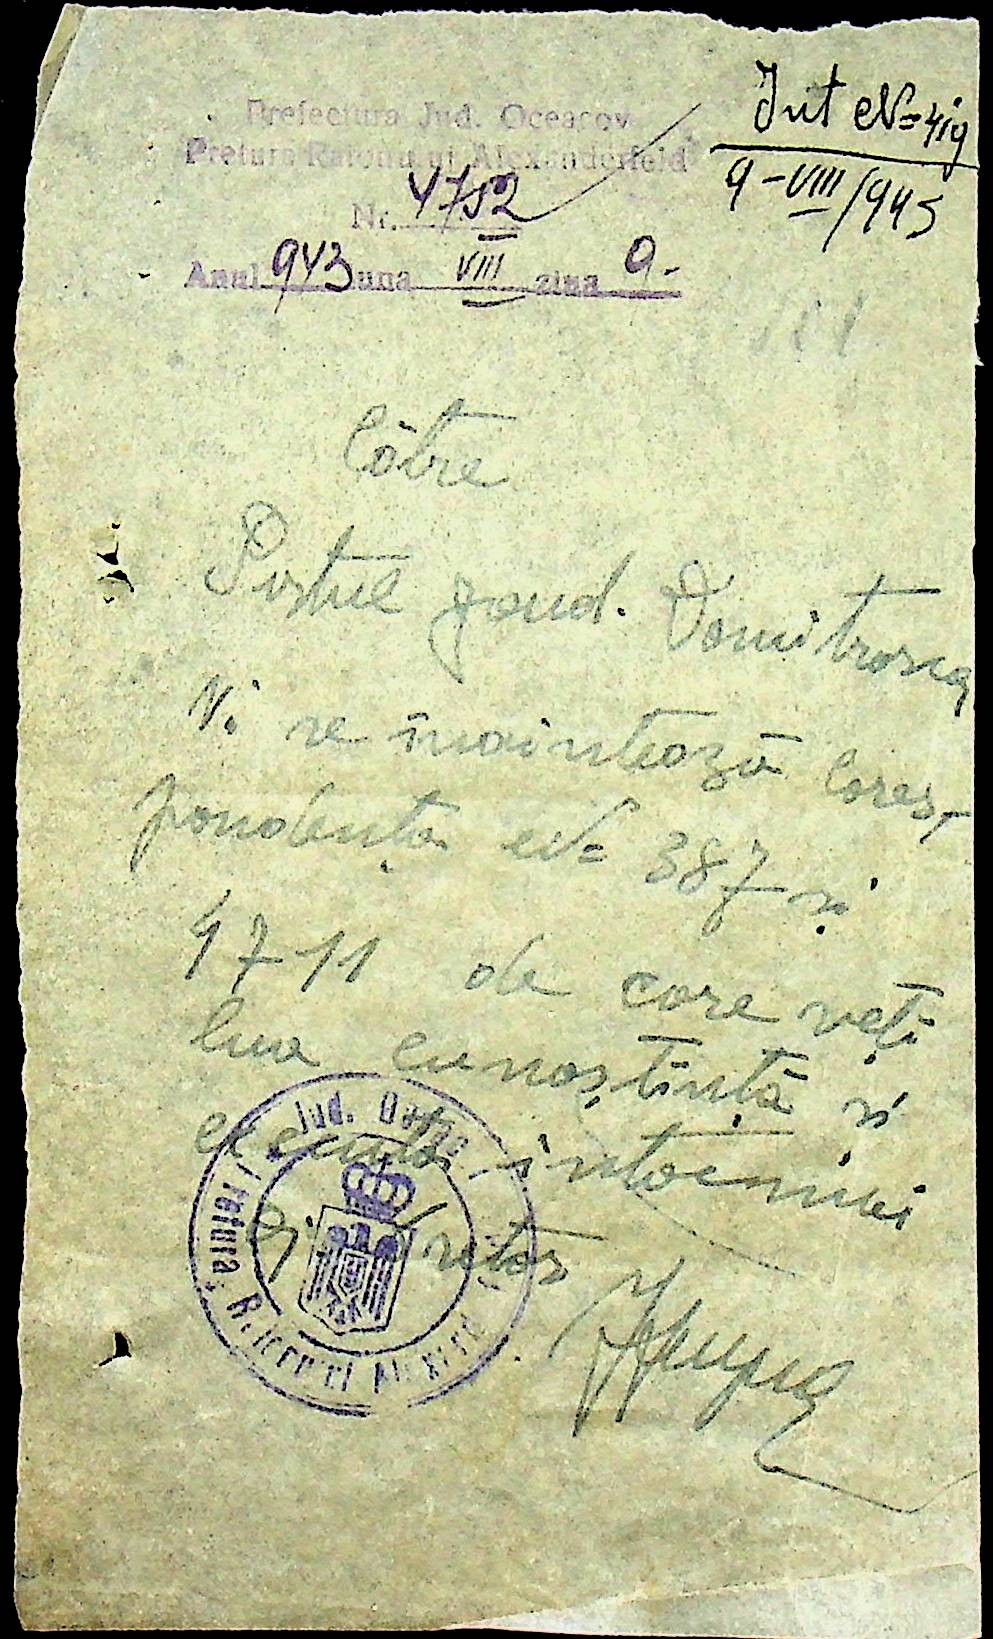 Int №=419
9-VIII/943
Prefectura Jud. Oceacov
Pretura Raionului Alexanderfeld
Nr. 4752
Anul 943 luna VIII ziua 9.
Către
Postul jand. Domitrovca
Vi se înaintează Cores,
pondența № 387 și
4711 de care veți
lua cunoștință și
executa întocmai
Pretor
Jud. Oceacov
Pretura Raionului Alexanderfeld